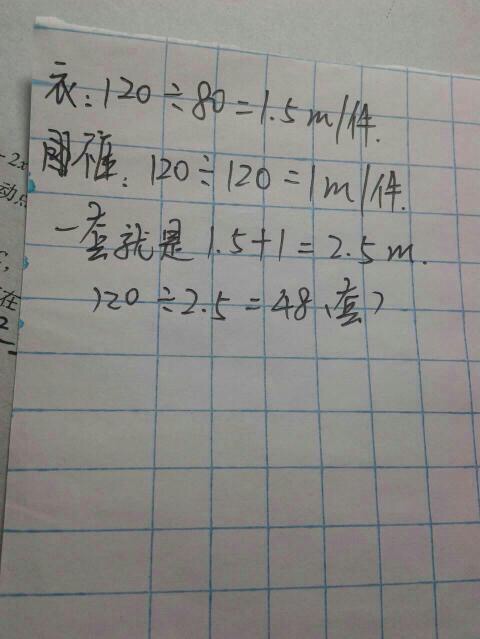 衣:120÷80=1.5m/件.
120÷120=1m/件.
一套就是1.5+1=2.5m.
120÷2.5=48(套)
-2x
动点
在
2